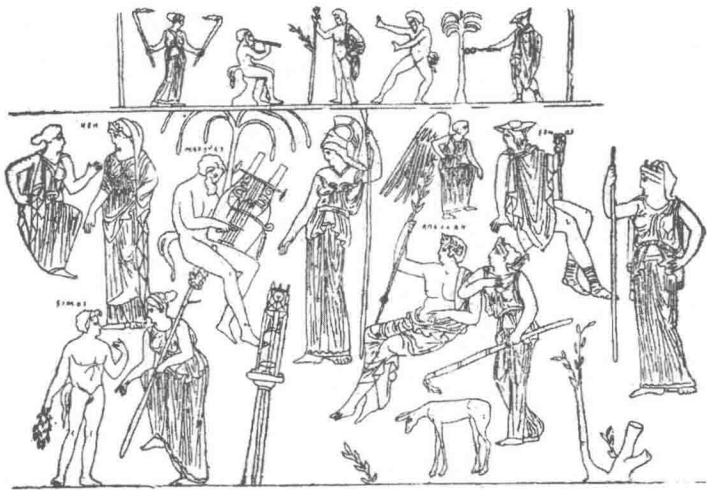 ΗΒΗ
ΜΑΡΣΥΑΣ
ΑΠΟΛΛΩΝ
ΣΙΜΟΣ